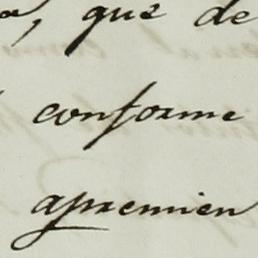 , que de
conforme
apremien